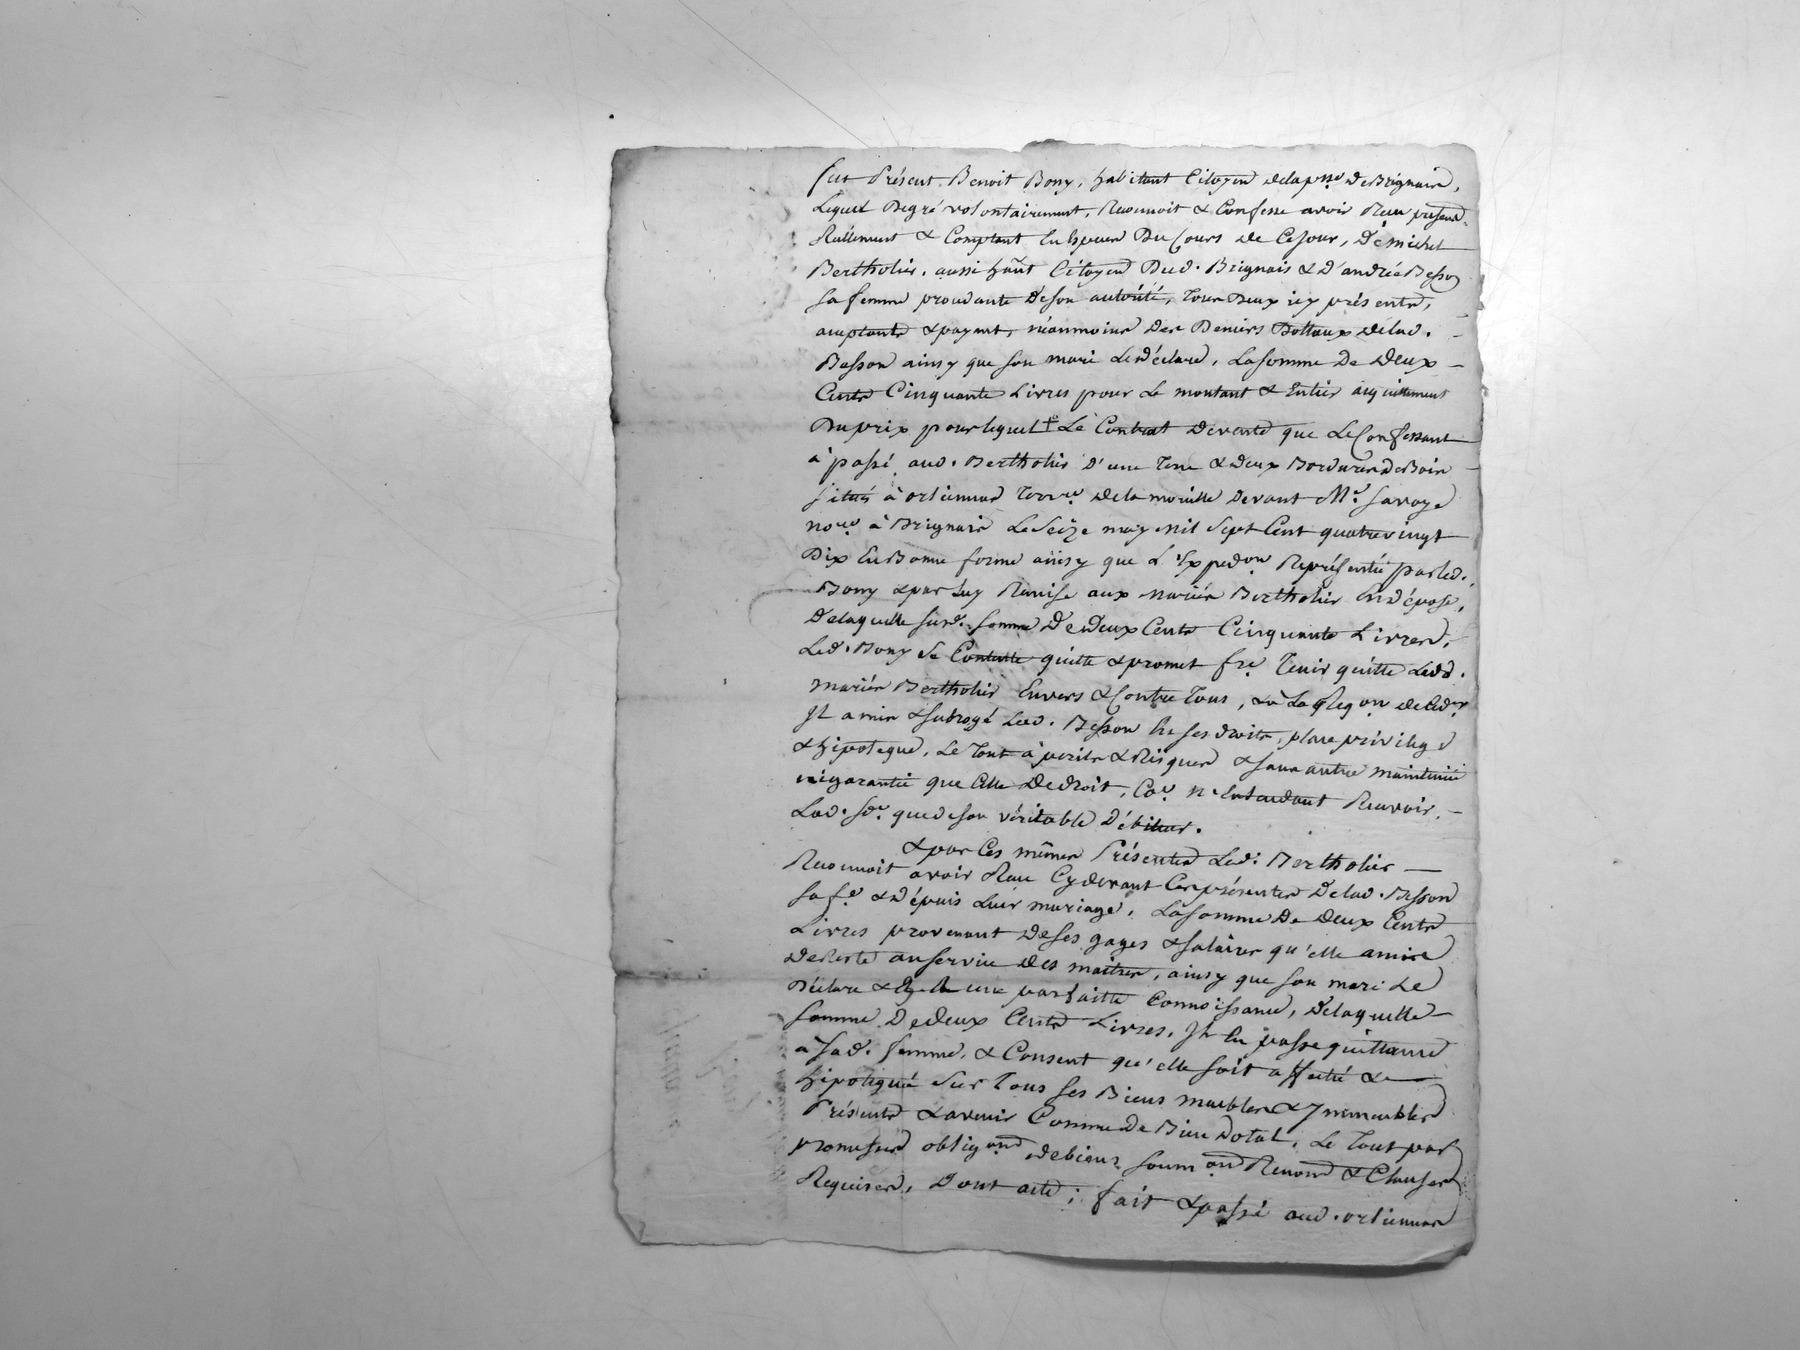 fut Présent Benoit Bony, habitant Citoyen delapsse DeBrignais,
Lequel Degré volontairement, Reconnoit & Confesse avoir Receu présent.
Réellement & Comptant En Espèces Du Cours de CeJour, De michel
Bertholier, aussi haūt Citoyen Dud. Brignais & D'andrée Besson
sa femme procedante Deson autorité, tous Deux icy présents,
acceptants & payant, néanmoins Des Deniers Dottaux delad.
Besson ainsy que son mari Ledéclare, Lasomme De Deux
Cents Cinquante Livres pour Le montant & Entier acquittement
Du prix pourlequel Le Contrat Devente que LeConfessant
à passé aud. Bertholier D'une Terre & deux Bordures DeBois
situés à orliennas Terre. dela Devant Me. Savoye
nore à Brignais LeSeize may mil Sept Cent quatrevingt
Dix EnBonne forme ainsy que L'Expedon Représentée parled.
Bony & par Luy Remise aux mariés Bertholier En dépose,
Delaquelle susd. somme DeDeux Cents Cinquante Livres,
Led. Bony se Contente quitte & promet fre Tenir quitte Lesd.
mariés Bertholier Envers & Contre Tous, & à La
Il a mis & subrogé Lad. Besson En ses droits, place privilege
& hipoteque, Le Tout à perils & Risques & sans autre maintenüe
négarantie que Celle Dedroit, N'Entendant Recevoir
Lad. que de son véritable Débiteur.
& par Ces mêmes Présentes Led. Bertholier
Reconnoit avoir Receu Cydevant Cesprésentes Delad. Besson
saf.e & Dépuis Leur mariage, Lasomme De Deux Cents
Livres provenant deses gages & salaires qu'elle amise
deReste auservice des maîtres, ainsy que son mari Le
Déclare & une parfaitte Connoissance, Delaquelle
somme DeDeux Cents Livres, Il En passe quittance
à sad. femme, & Consent qu'elle soit affectée &
hipotequée sur Tous ses Biens meubles & Immeubles
Présents & avenir Comme De Bien Dotal, Le Tout par
promesses obligons debiens soumons Renonons & Clauses
Requises, Dont acte; fait & passé aud. orliennas